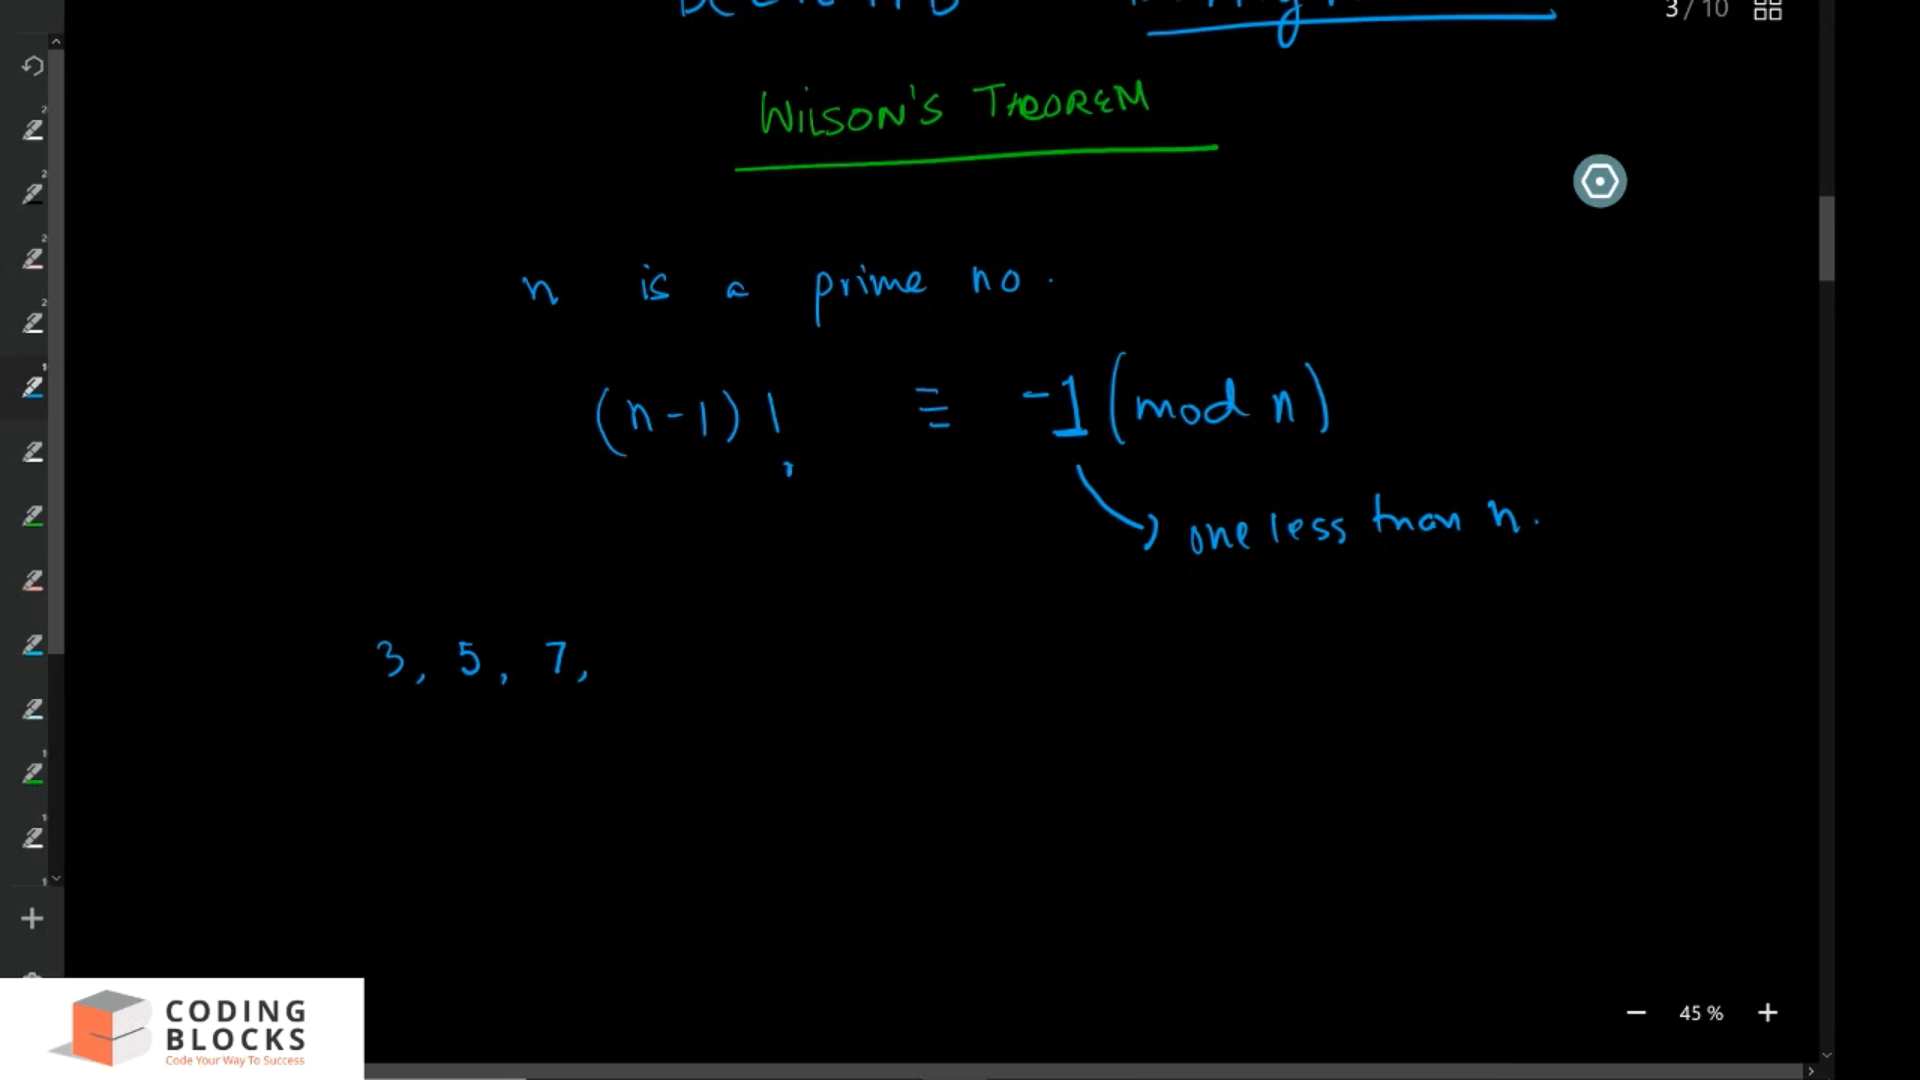 3 / 10
WILSON'S THEOREM
n is a prime no.
(n-1)! ≡ -1 (mod n)
one less than n.
3, 5, 7,
CODING
BLOCKS
Code Your Way To Success
45 %